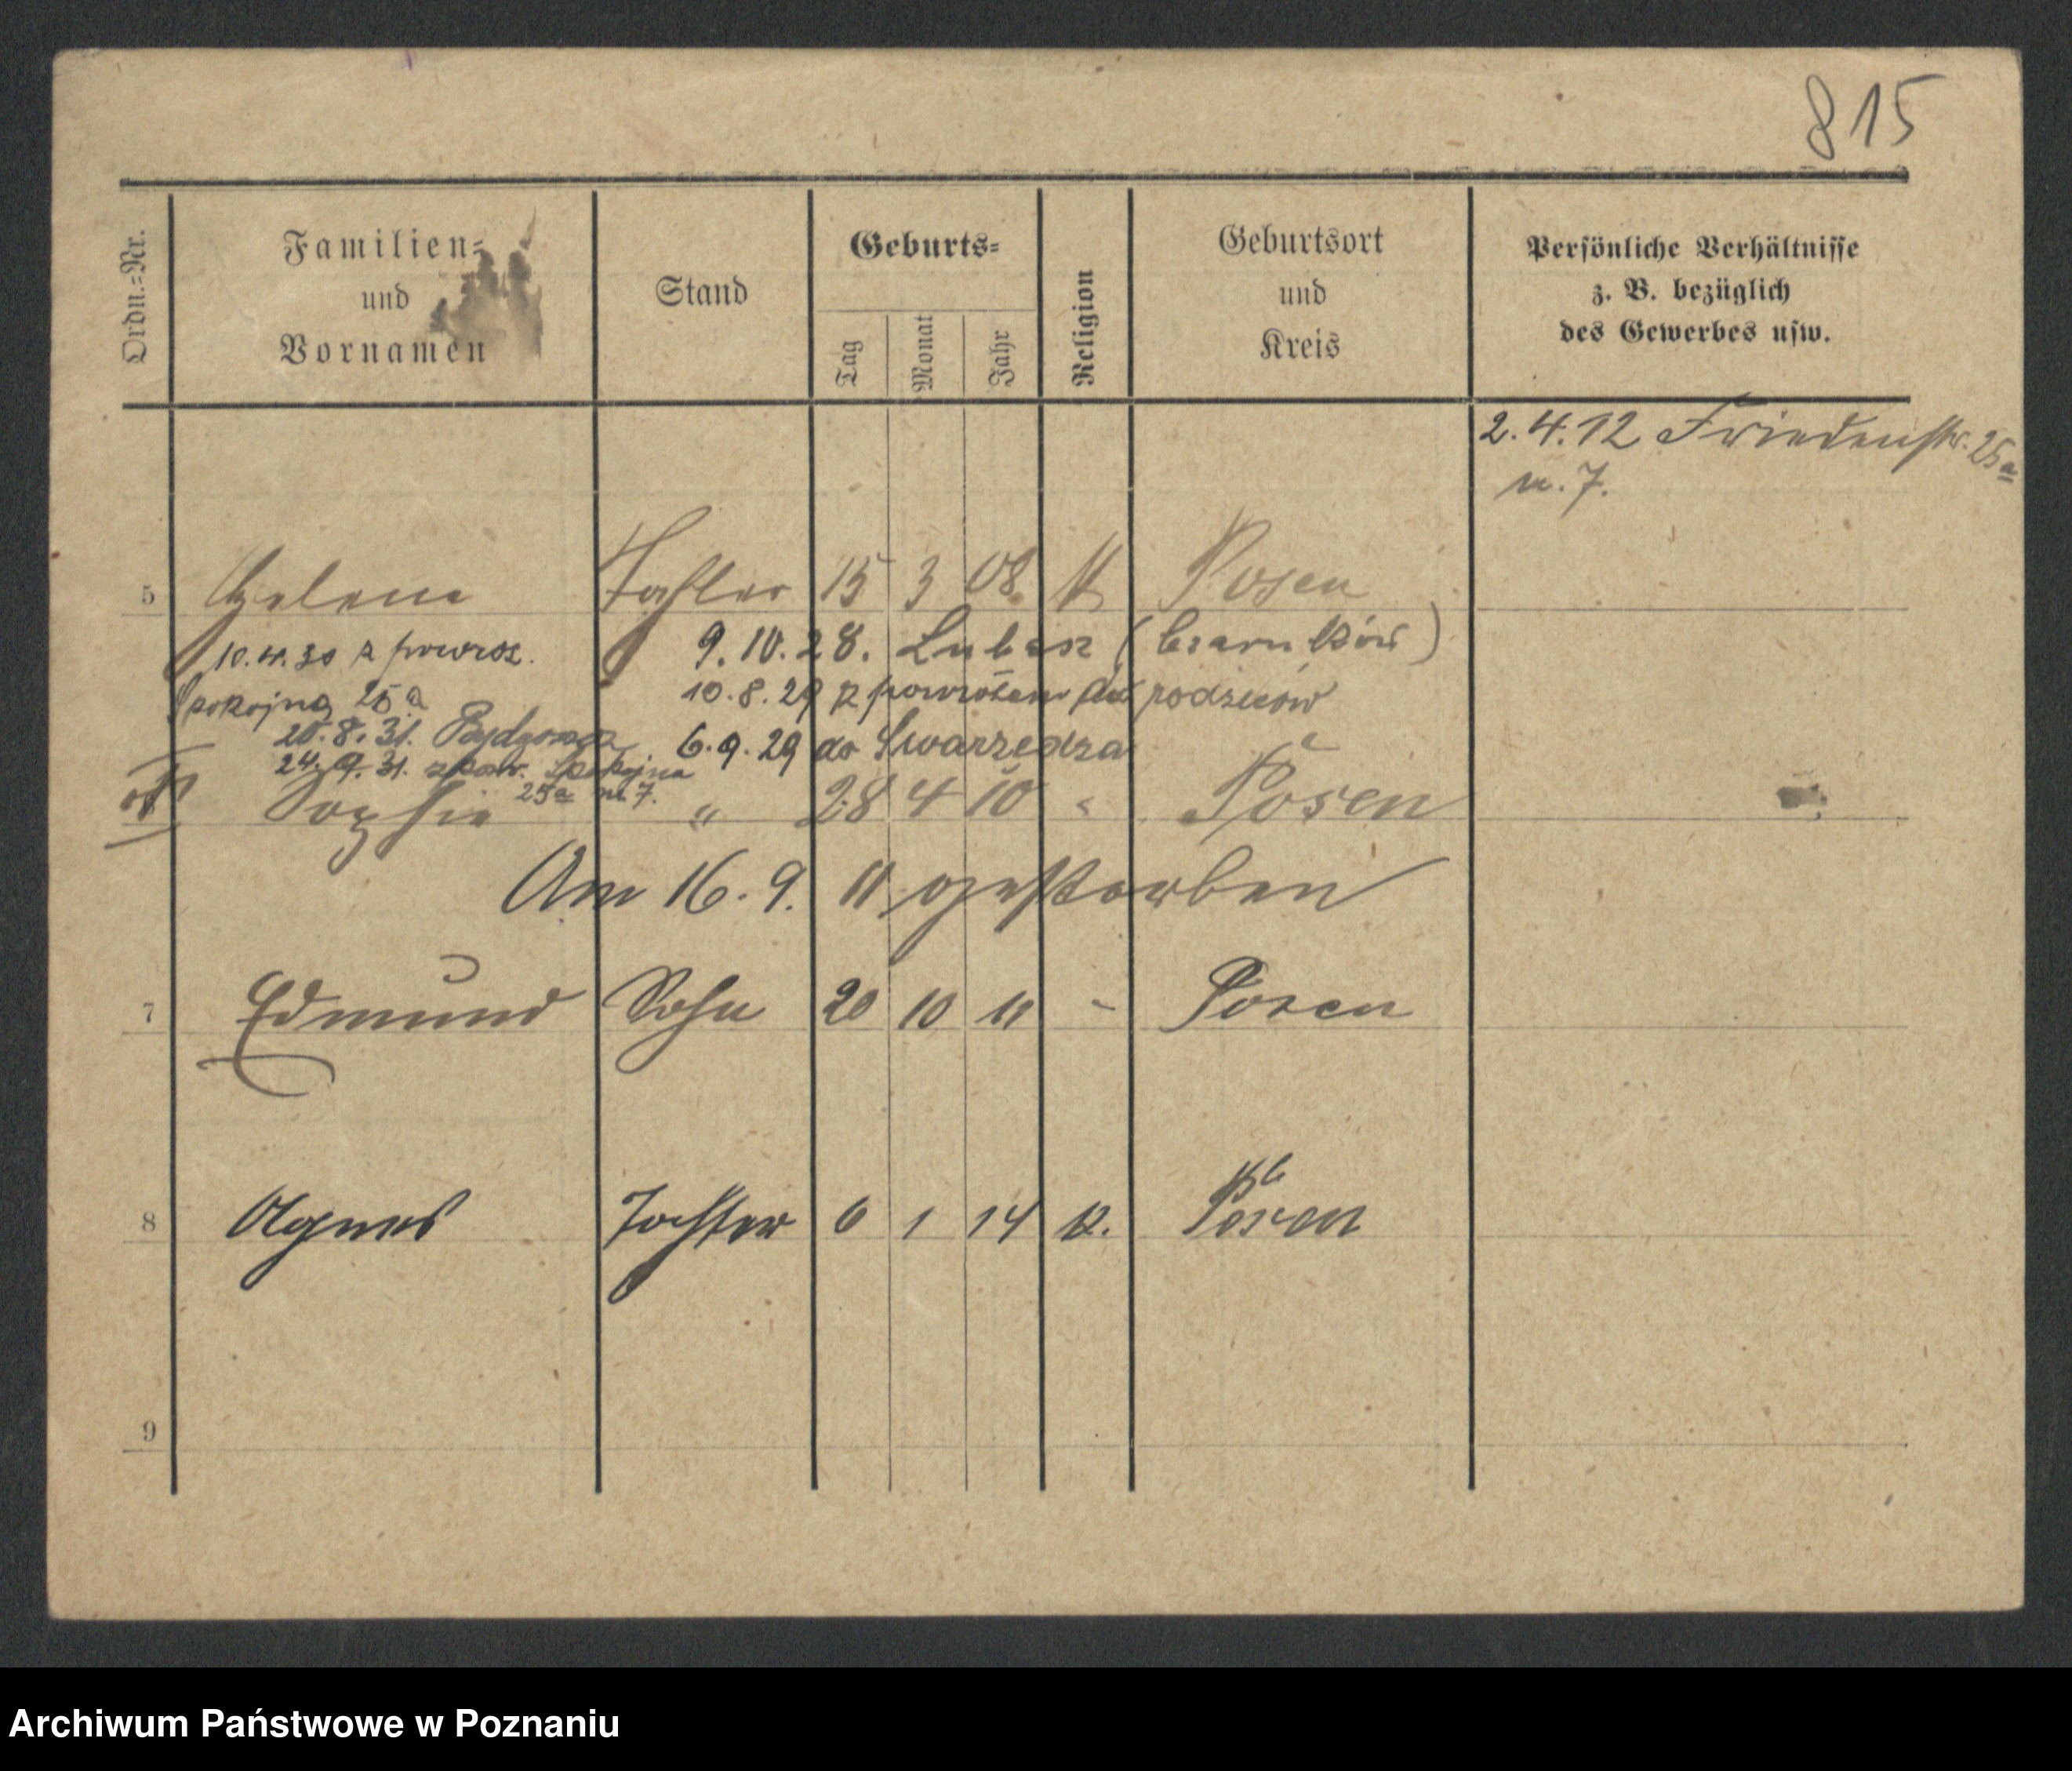 815
Ordn.-Nr.
Familien-
und
Vornamen
Stand
Geburts-
Tag
Monat
Jahr
Religion
Geburtsort
und
Kreis
Persönliche Verhältnisse
z. B. bezüglich
des Gewerbes usw.
2.4.12 Friedenstr. 25a
w. 7.
5 Helene Tochter 15 3 08. K Posen
9.10.28. Lubasz (Czarnków)
10.4.30 z powroz.
10.8.29 z powrotem do rodziców
Spokojna 25a
20.8.31. Bydgoszcz
6.9.29 do Swarzędza
24.9.31. z pow. Spokojna
25a m. 7.
Sophie " 28 4 10 " Posen
Am 16.9. 11 gestorben
7 Edmund Sohn 20 10 11 - Posen
8 Agnes Tochter 6 1 14 k. Posen
9
Archiwum Państwowe w Poznaniu